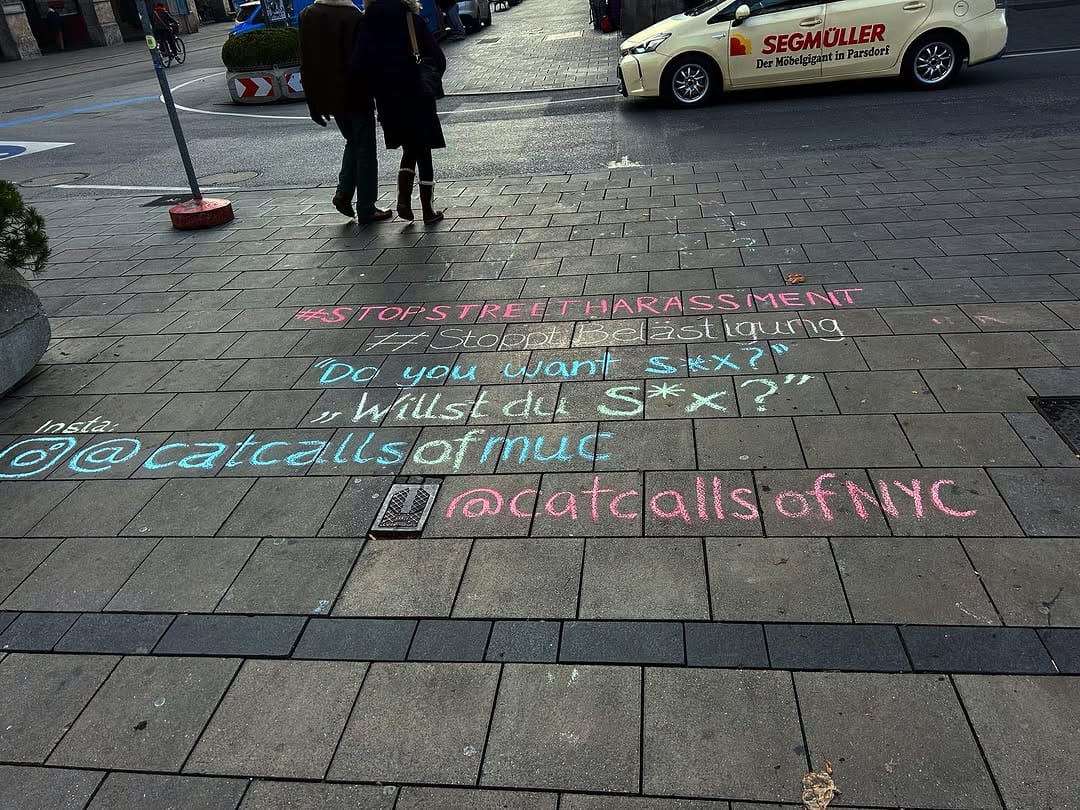 SEGMÜLLER
Der Möbelgigant in Parsdorf
#STOPSTREETHARASSMENT
#Stoppt Belästigung
"Do you want s*x?"
„Willst du S*x?"
Insta:
@catcallsofmuc
@catcallsofNYC